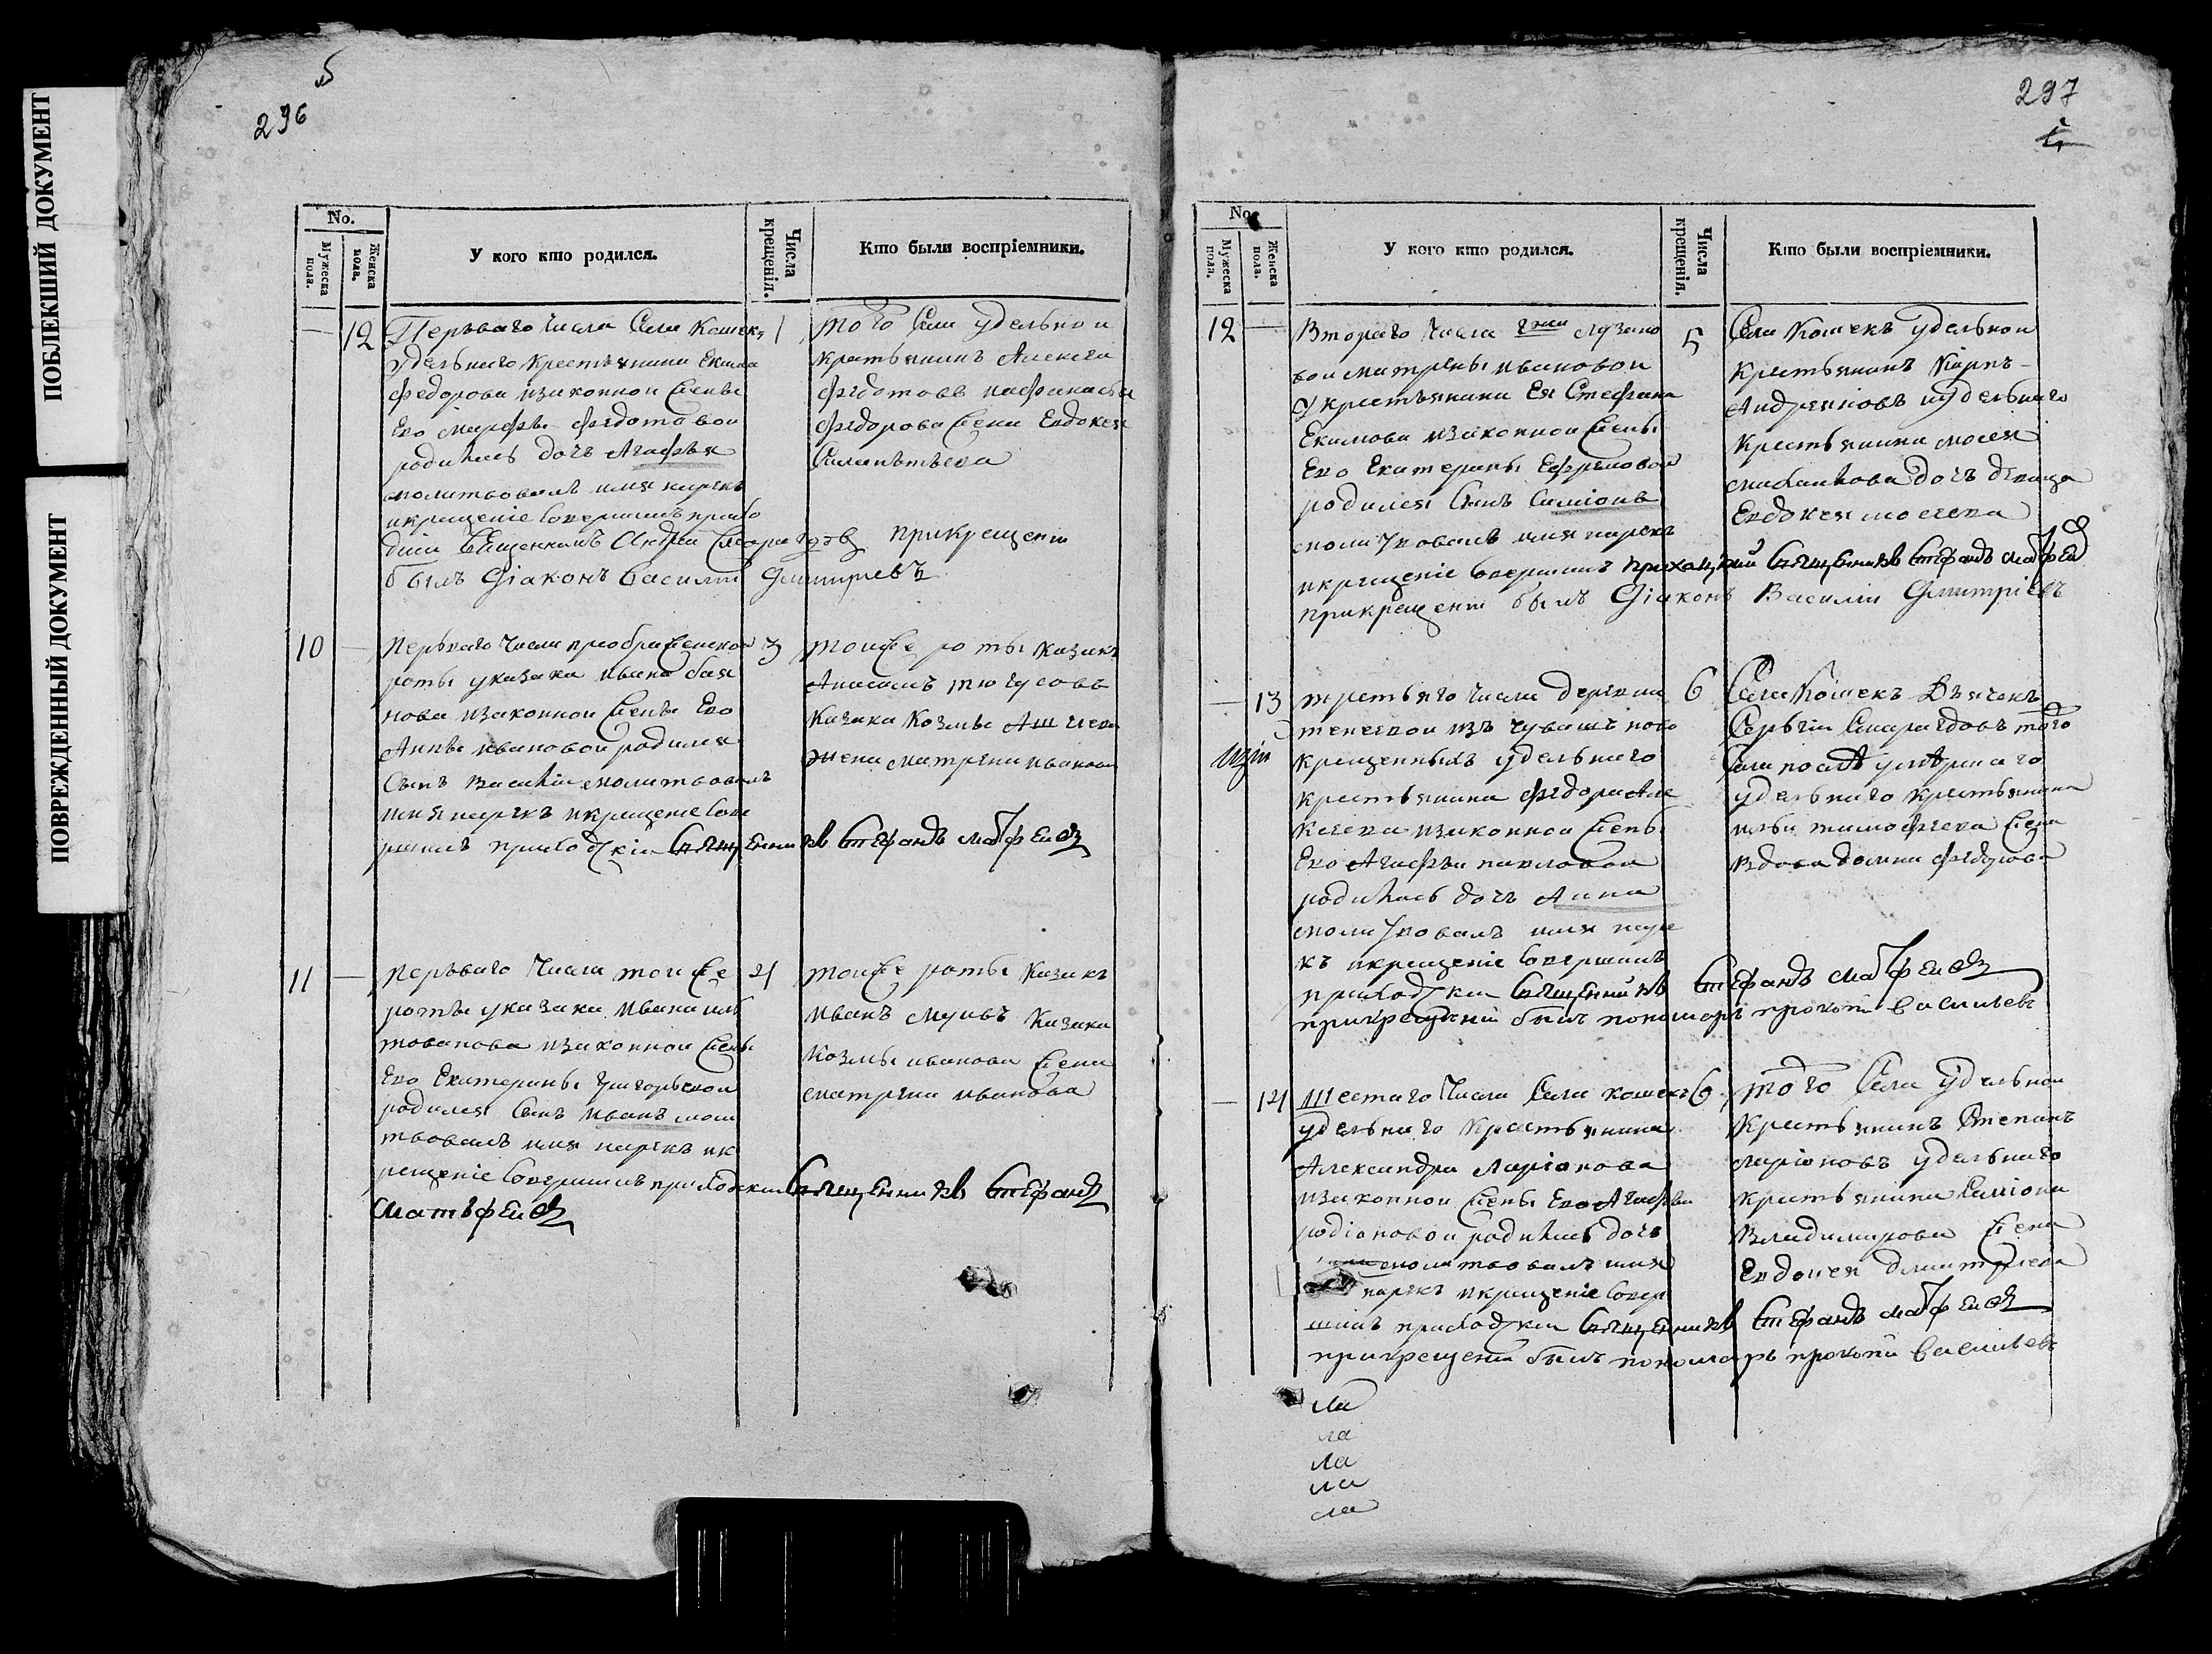 ПОБЛЕКШИЙ ДОКУМЕНТ
ПОВРЕЖДЕННЫЙ ДОКУМЕНТ
5
296
No.
Мужеска пола.
Женска пола.
У кого кто родился.
Числа крещенія.
Кто были воспріемники.
12
Перьваго числа села Кошекъ
удельнаго крестьянина Екима
федорова изаконной жены
Ево марфы федотовой
родилась дочь Агафья
молитвовалъ имя нарекъ
икрещеніе совершилъ прихо
Священникъ Андрей
былъ Діаконъ василий Дмитриевъ
прикрещении
1
того села удельной
крестьянинъ Алексей
федотовъ иафанасья
федорова жена Евдокея
10
перьваго числа преображенской
роты указака ивана
нова изаконной жены Ево
Анны ивановой родился
сынъ василій молитвовалъ
имя нарекъ икрещеніе сове
ршилъ приходскій священникъ стефанъ матфеевъ
3
тойже роты казакъ
казака козмы
жена матрена иванова
11
перьваго числа тойже
роты указака ивана
изаконной жены
Ево Екатерины григорьевой
родился сынъ иванъ моли
твовалъ имя нарекъ ик
рещеніе совершилъ приходский священникъ стефанъ
матъфеевъ
4
тойже роты казакъ
иванъ казака
козмы иванова жена
матрена иванова
297
No.
Мужеска пола.
Женска пола.
У кого кто родился.
Числа крещенія.
Кто были воспріемники.
12
Втораго числа
вой матрены ивановой
укрестьянина Ея Стефана
Екимова изаконной жены
Ево Екатерины Ефремовой
родился сынъ симіонъ
молитвовалъ имя нарекъ
икрещеніе совершилъ приходский священникъ стефанъ матфеевъ
прикрещении былъ Діаконъ Василий Дмитріевъ
5
села Кошекъ удельной
крестьянинъ карпъ
Андреяновъ иудельнаго
крестьянина мосея
михайлова дочь девица
Евдокея мосеева
13
третьяго числа деревни
изъ чувашъ ново
крещенныхъ удельнаго
крестьянина федора Але
ксеева изаконной жены
Ево Агафьи павловой
родилась дочь Анна
молитвовалъ имя наре
къ икрещеніе совершилъ
приходский священникъ стефанъ матфеевъ
прикрещении былъ пономарь прокопий васильевъ
6
села Кошекъ Дьячекъ
Сергій Смарагдовъ того
села после умершаго
удельнаго крестьянина
ильи тимофеева жена
вдова домна федорова
14
Шестаго числа села кошекъ
удельнаго крестьянина
Александра ларіонова
изаконной жены Ево Агафьи
родіоновой родилась дочь
молитвовалъ имя
нарекъ икрещеніе совер
шилъ приходский священникъ стефанъ матфеевъ
прикрещении былъ пономарь прокопий васильевъ
6
того села удельной
крестьянинъ Степанъ
ларіоновъ удельнаго
крестьянина симіона
владимирова жена
Евдокея дмитриева
ла
ла
ла
ла
ла